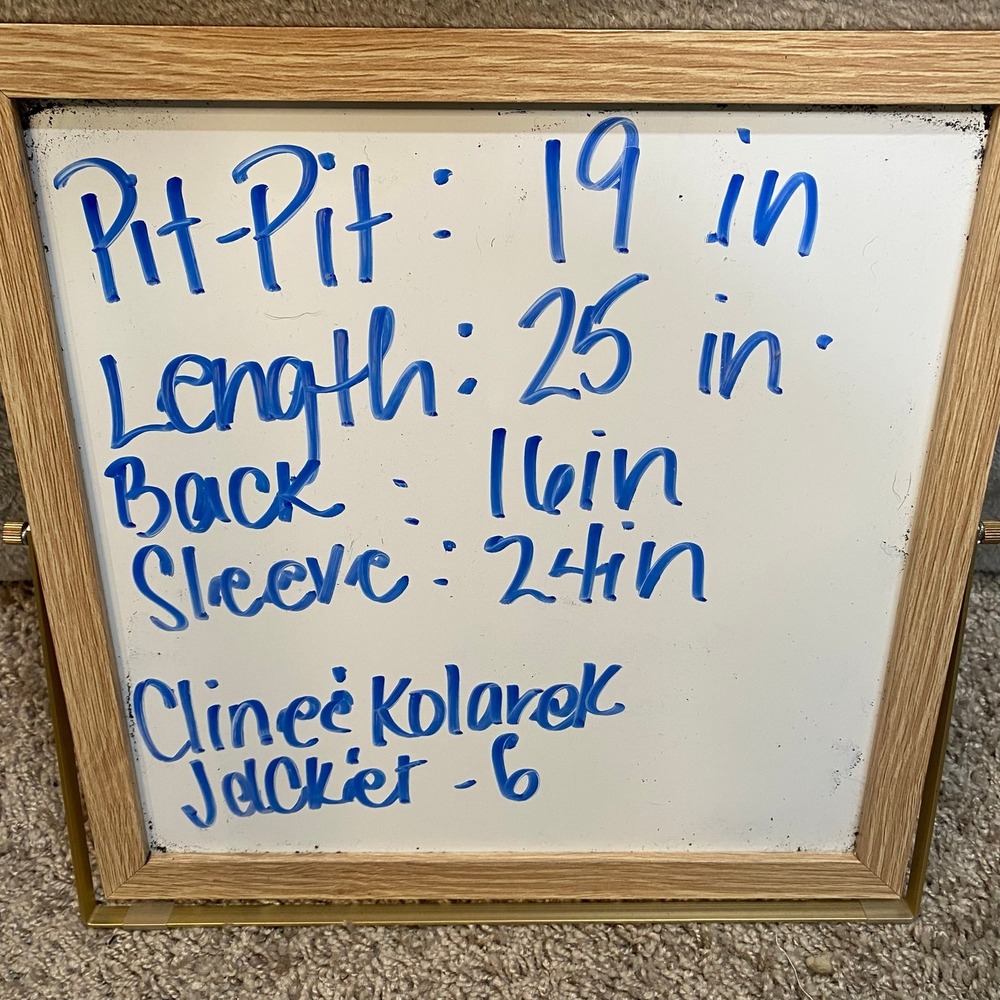 Pit-Pit: 19 in
Length: 25 in.
Back : 16in
Sleeve: 24in
Cline & Kolarek
Jacket - 6